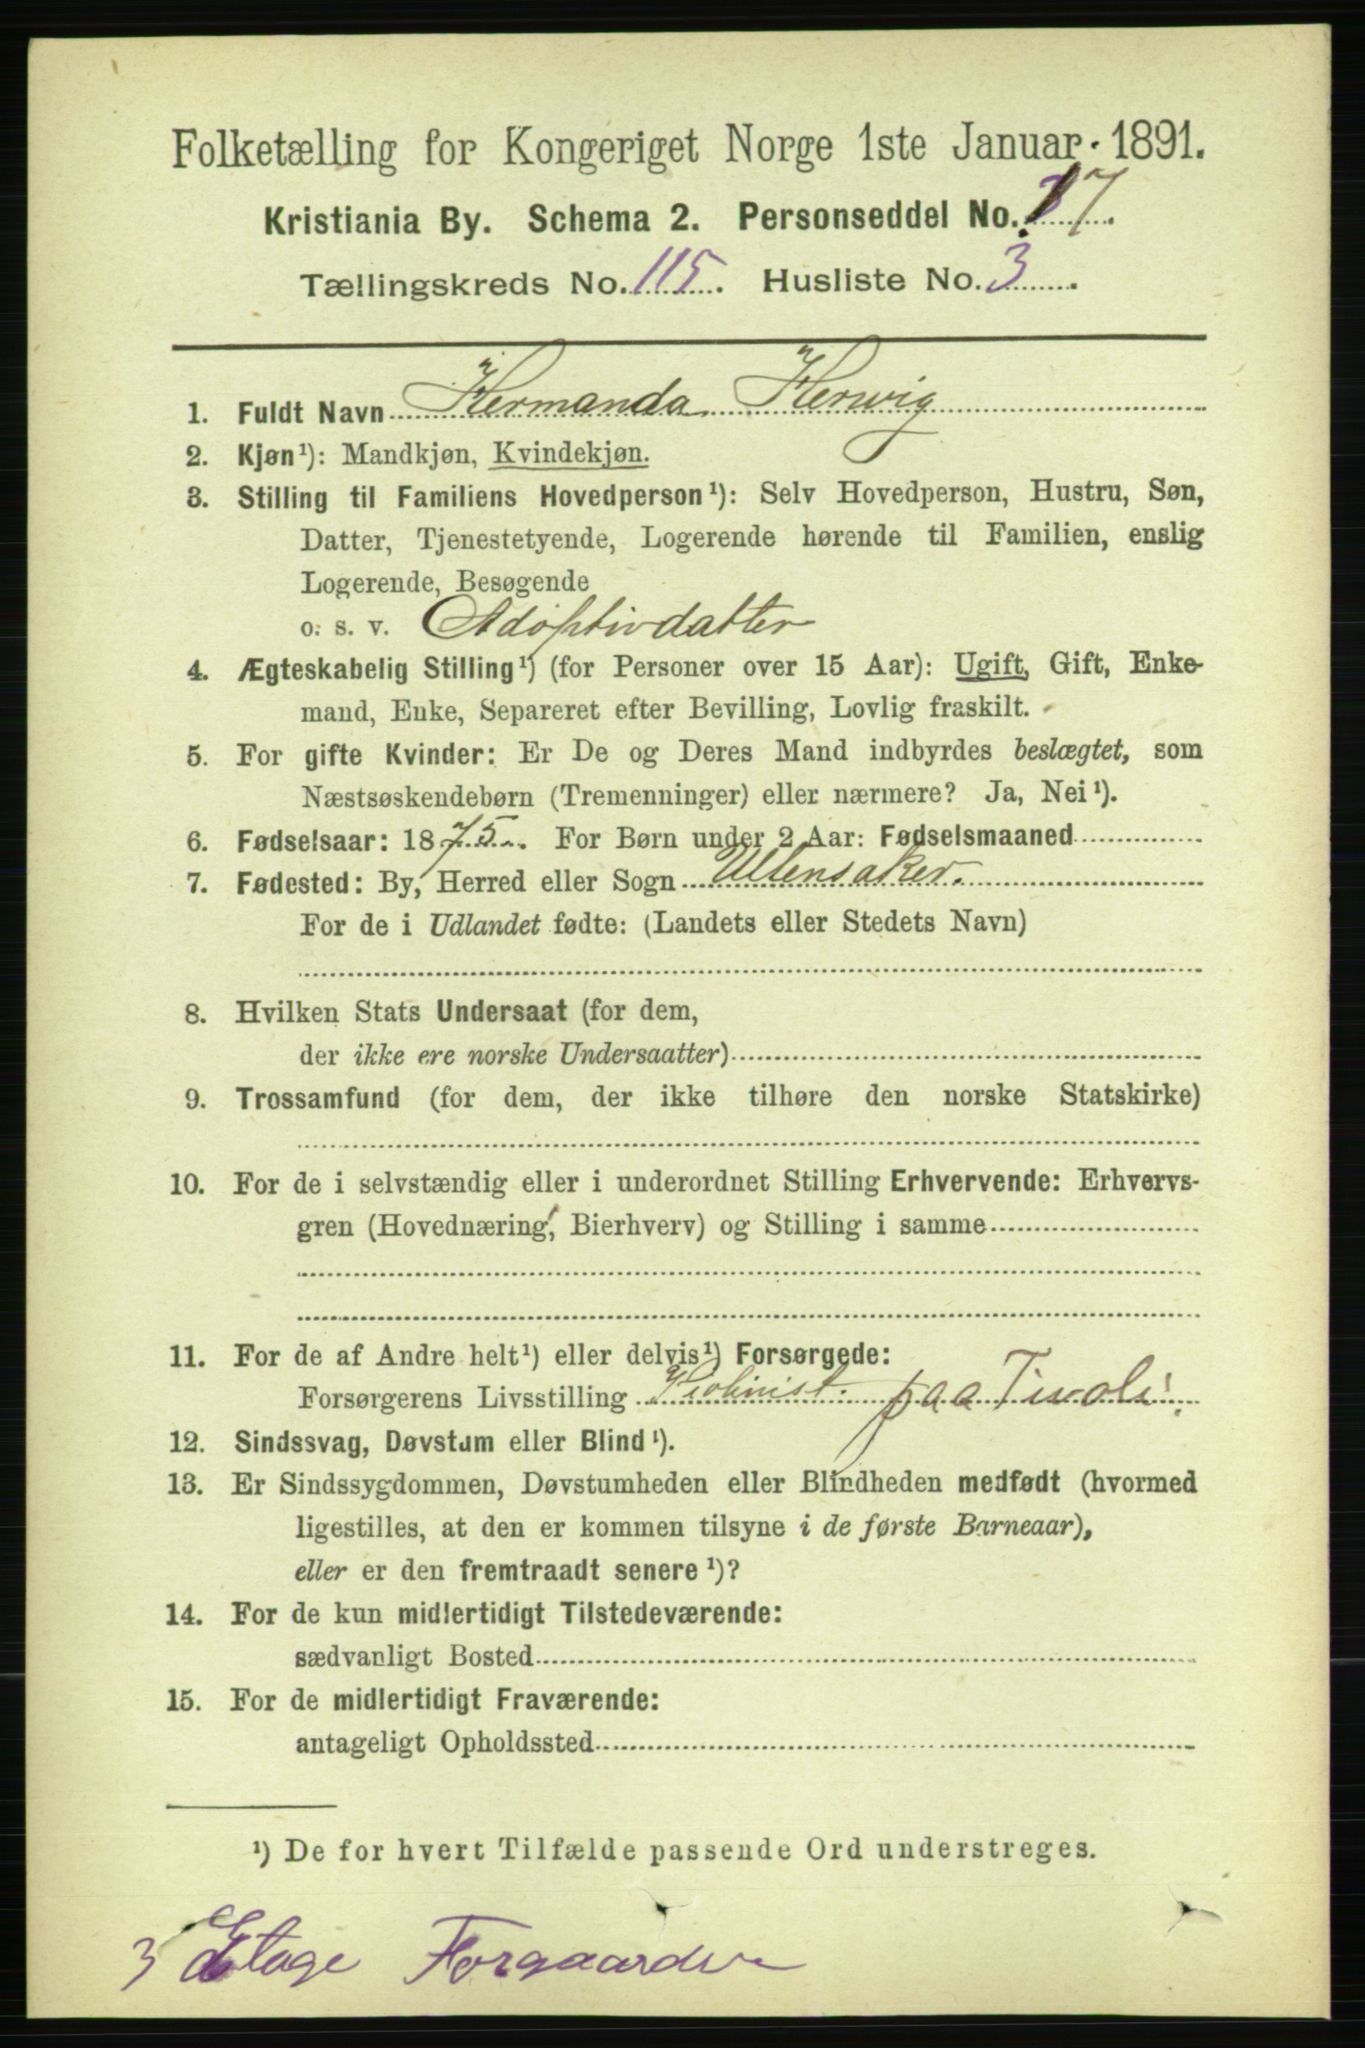 Folketælling for Kongeriget Norge 1ste Januar 1891.
Kristiania By. Schema 2. Personseddel No. 17.
Tællingskreds No. 115. Husliste No. 3.
1. Fuldt Navn Hermanda Herwig
2. Kjøn¹): Mandkjøn, Kvindekjøn.
3. Stilling til Familiens Hovedperson¹): Selv Hovedperson, Hustru, Søn,
Datter, Tjenestetyende, Logerende hørende til Familien, enslig
Logerende, Besøgende
o. s. v. Adoptivdatter
4. Ægteskabelig Stilling¹) (for Personer over 15 Aar): Ugift, Gift, Enke-
mand, Enke, Separeret efter Bevilling, Lovlig fraskilt.
5. For gifte Kvinder: Er De og Deres Mand indbyrdes beslægtet, som
Næstsøskendebørn (Tremenninger) eller nærmere? Ja, Nei¹).
6. Fødselsaar: 1875. For Børn under 2 Aar: Fødselsmaaned
7. Fødested: By, Herred eller Sogn Ullensaker.
For de i Udlandet fødte: (Landets eller Stedets Navn)
8. Hvilken Stats Undersaat (for dem,
der ikke ere norske Undersaatter)
9. Trossamfund (for dem, der ikke tilhøre den norske Statskirke)
10. For de i selvstændig eller i underordnet Stilling Erhvervende: Erhvervs-
gren (Hovednæring, Bierhverv) og Stilling i samme
11. For de af Andre helt¹) eller delvis¹) Forsørgede:
Forsørgerens Livsstilling Violinist. paa Tivoli.
12. Sindssvag, Døvstum eller Blind¹).
13. Er Sindssygdommen, Døvstumheden eller Blindheden medfødt (hvormed
ligestilles, at den er kommen tilsyne i de første Barneaar),
eller er den fremtraadt senere¹)?
14. For de kun midlertidigt Tilstedeværende:
sædvanligt Bosted
15. For de midlertidigt Fraværende:
antageligt Opholdssted
¹) De for hvert Tilfælde passende Ord understreges.
3 Etage Forgaarden